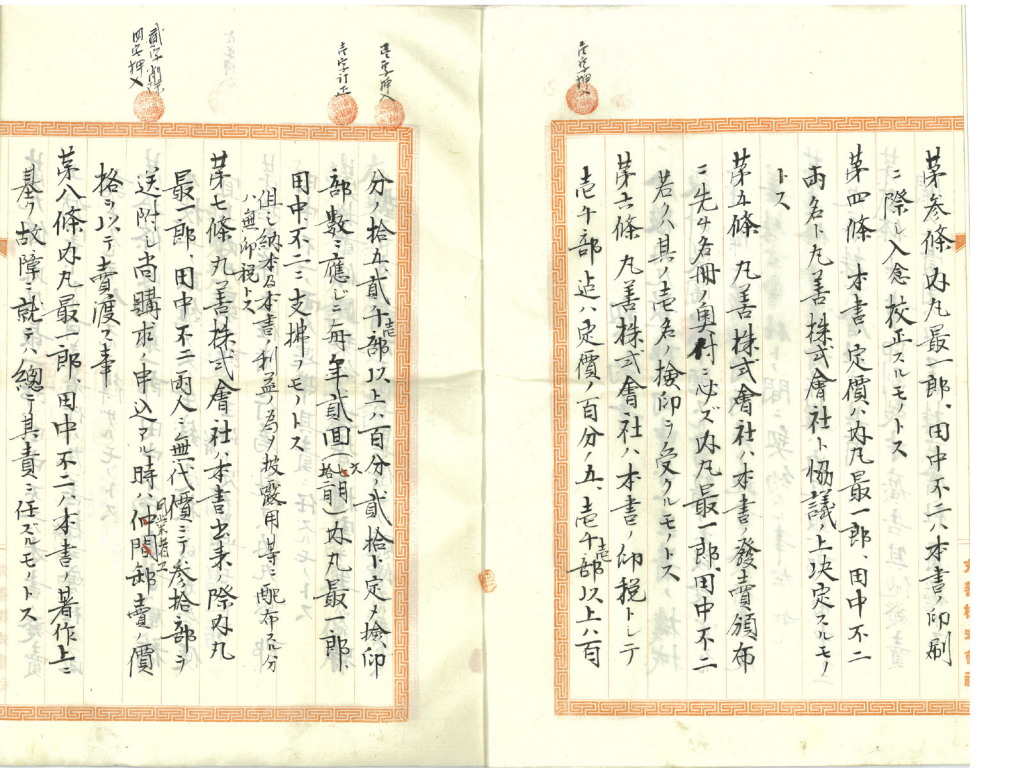 壱字挿入
第参條 内丸最一郎、田中不二ハ本書ノ印刷
ニ際シ入念校正スルモノトス
第四條 本書ノ定價ハ内丸最一郎、田中不二
両名ト丸善株式會社ト協議ノ上決定スルモノ
トス
第五條 丸善株式會社ハ本書ノ發賣頒布
ニ先チ各冊ノ奥付ニ必ズ内丸最一郎、田中不二
若クハ其ノ壱名ノ検印ヲ受クルモノトス
第六條 丸善株式會社ハ本書ノ印税トシテ
壱千部迠ハ定價ノ百分ノ五、壱千壱部以上ハ百
丸善株式會社
壱字挿入
壱字訂正
貳字削除
四字挿入
分ノ拾五貳千壱部以上ハ百分ノ貳拾ト定メ検印
部数ニ應ジ毎年貳回(六月拾二月)内丸最一郎、
田中不二ニ支拂フモノトス
但シ納本及本書ノ利益ノ為メ披露用等ニ配布スル分
ハ無印税トス
第七條 丸善株式會社ハ本書出来ノ際内丸
最一郎、田中不二両人ニ無代價ニテ参拾部ヲ
送附シ尚購求ノ申込アル時ハ同業者仲間卸賣ノ價
格ヲ以テ賣渡ス事
第八條 内丸最一郎田中不二ハ本書ノ著作上ニ
基ク故障ニ就テハ總テ其責ニ任ズルモノトス